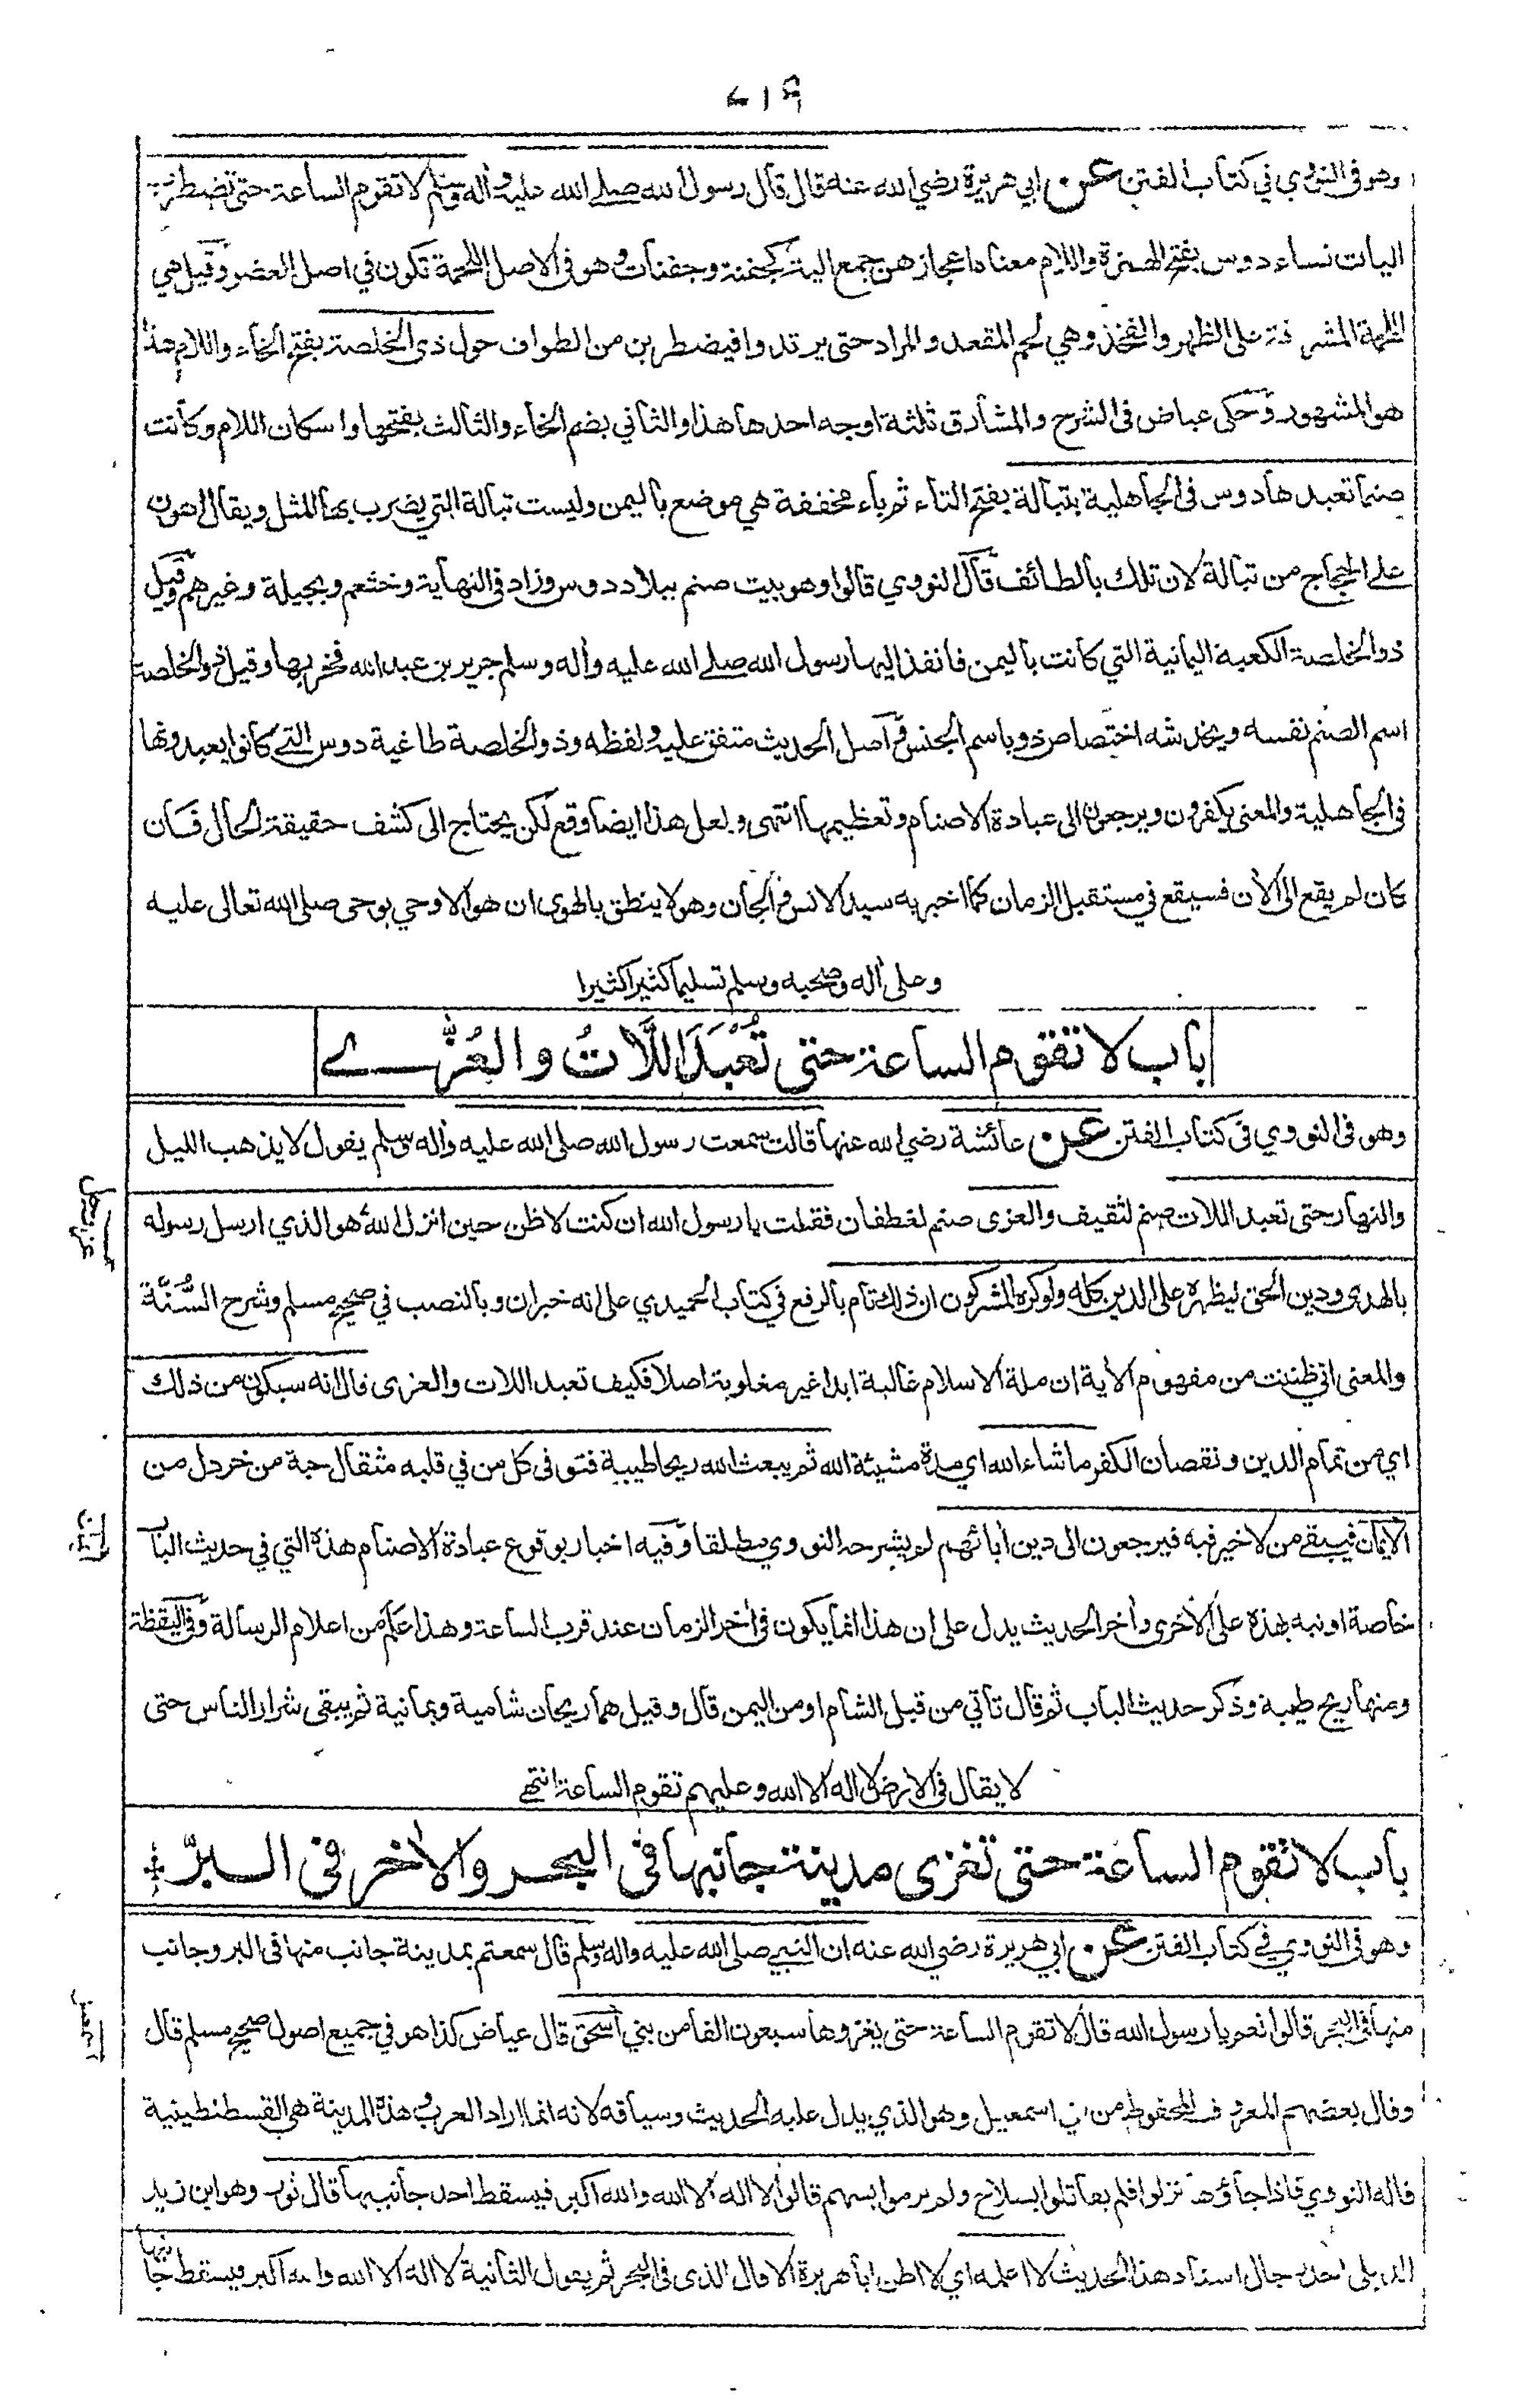 ٤١٩
وهو في النووي في كتاب الفتن عن ابي هريرة رضي الله عنه قال قال رسول الله صلى الله عليه واله وسلم لا تقوم الساعة حتى تضطرب
اليات نساء دوس بفتح الهمزة واللام معناه اعجازهن جمع الية كجفنة وجفنات وهو في الاصل اللحمة تكون في اصل العضو وقيل هي
اللحمة المشرفة على الظهر والفخذ وهي لحم المقعد والمراد حتى يرتدوا فيضطربن من الطواف حول ذي الخلصة بفتح الخاء واللام هذا
هو المشهور وحكى عياض في الشرح والمشارق ثلثة اوجه احدها هذا والثاني بضم الخاء والثالث بفتحها واسكان اللام وكانت
صنما تعبدها دوس في الجاهلية بتبالة بفتح التاء ثم باء مخففة هي موضع باليمن وليست تبالة التي يضرب بها المثل ويقال اهون
على الحجاج من تبالة لان تلك بالطائف قال النووي قالوا وهو بيت صنم ببلاد دوس وزاد في النهاية وخثعم وبجيلة وغيرهم وقيل
ذو الخلصة الكعبة اليمانية التي كانت باليمن فانفذ اليها رسول الله صلى الله عليه واله وسلم جرير بن عبد الله فخربها وقيل ذو الخلصة
اسم الصنم نفسه ويخدشه اختصاص ذو باسم الجنس واصل الحديث متفق عليه ولفظه وذو الخلصة طاغية دوس التي كانوا يعبدونها
في الجاهلية والمعنى يكفرون ويرجعون الى عبادة الاصنام وتعظيمها انتهى ولعل هذا ايضا وقع لكن يحتاج الى كشف حقيقة الحال فان
كان لم يقع الى الأن فسيقع في مستقبل الزمان كما اخبر به سيد الانس والجان وهو لا ينطق بالهوى ان هو الا وحي يوحى صلى الله تعالى عليه
وعلى أله وصحبه وسلم تسليما كثيرا كثيرا
باب لا تقوم الساعة حتى تُعْبَدَ اللَّاتُ والعُزّٰے
وهو في النووي في كتاب الفتن عن عائشة رضي الله عنها قالت سمعت رسول الله صلى الله عليه واله وسلم يقول لا يذهب الليل
والنهار حتى تعبد اللات صنم لثقيف والعزى صنم لغطفان فقلت يا رسول الله ان كنت لاظن حين انزل الله هو الذي ارسل رسوله
بالهدى ودين الحق ليظهره على الدين كله ولو كره المشركون ان ذلك تام بالرفع في كتاب الحميدي على انه خبر ان وبالنصب في صحيح مسلم وشرح السُّنَّة
والمعنى اني ظننت من مفهوم الأية ان ملة الاسلام غالبة ابدا غير مغلوبة اصلا فكيف تعبد اللات والعزى قال انه سيكون من ذلك
اي من تمام الدين ونقصان الكفر ما شاء الله اي مدة مشيئة الله ثم يبعث الله ريحا طيبة فتوفى كل من في قلبه مثقال حبة من خردل من
الايمان فيبقى من لا خير فيه فيرجعون الى دين أبائهم لم يشرحه النووي مطلقا وفيه اخبار بوقوع عبادة الاصنام هذه التي في حديث الباب
خاصة او نبه بهذه على الأخرى وأخر الحديث يدل على ان هذا انما يكون في أخر الزمان عند قرب الساعة وهذا علم من اعلام الرسالة وفي اليقظة
ومنها ريح طيبة وذكر حديث الباب ثم قال تأتي من قبل الشام او من اليمن قال وقيل هما ريحان شامية ويمانية ثم يبقى شرار الناس حتى
لا يقال في الارض لا اله الا الله وعليهم تقوم الساعة انتهى
باب لا تقوم الساعة حتى تغزى مدينة جانبها في البحر والأخر في البرّ
وهو في النووي في كتاب الفتن عن ابي هريرة رضي الله عنه ان النبي صلى الله عليه واله وسلم قال سمعتم بمدينة جانب منها في البر وجانب
منها في البحر قالوا نعم يا رسول الله قال لا تقوم الساعة حتى يغزوها سبعون الفا من بني اسحق قال عياض كذا هو في جميع اصول صحيح مسلم قال
وقال بعضهم المعروف المحفوظ من بني اسمعيل وهو الذي يدل عليه الحديث وسياقه لانه انما اراد العرب وهذه المدينة هي القسطنطينية
قاله النووي فاذا جاؤها نزلوا فلم يقاتلوا بسلاح ولم يرموا بسهم قالوا لا اله الا الله والله اكبر فيسقط احد جانبيها قال ثور وهو ابن زيد
الديلي احد رجال اسناد هذا الحديث لا اعلمه اي لا اظن ابا هريرة الا قال الذي في البحر ثم يقول الثانية لا اله الا الله والله اكبر فيسقط جانبها